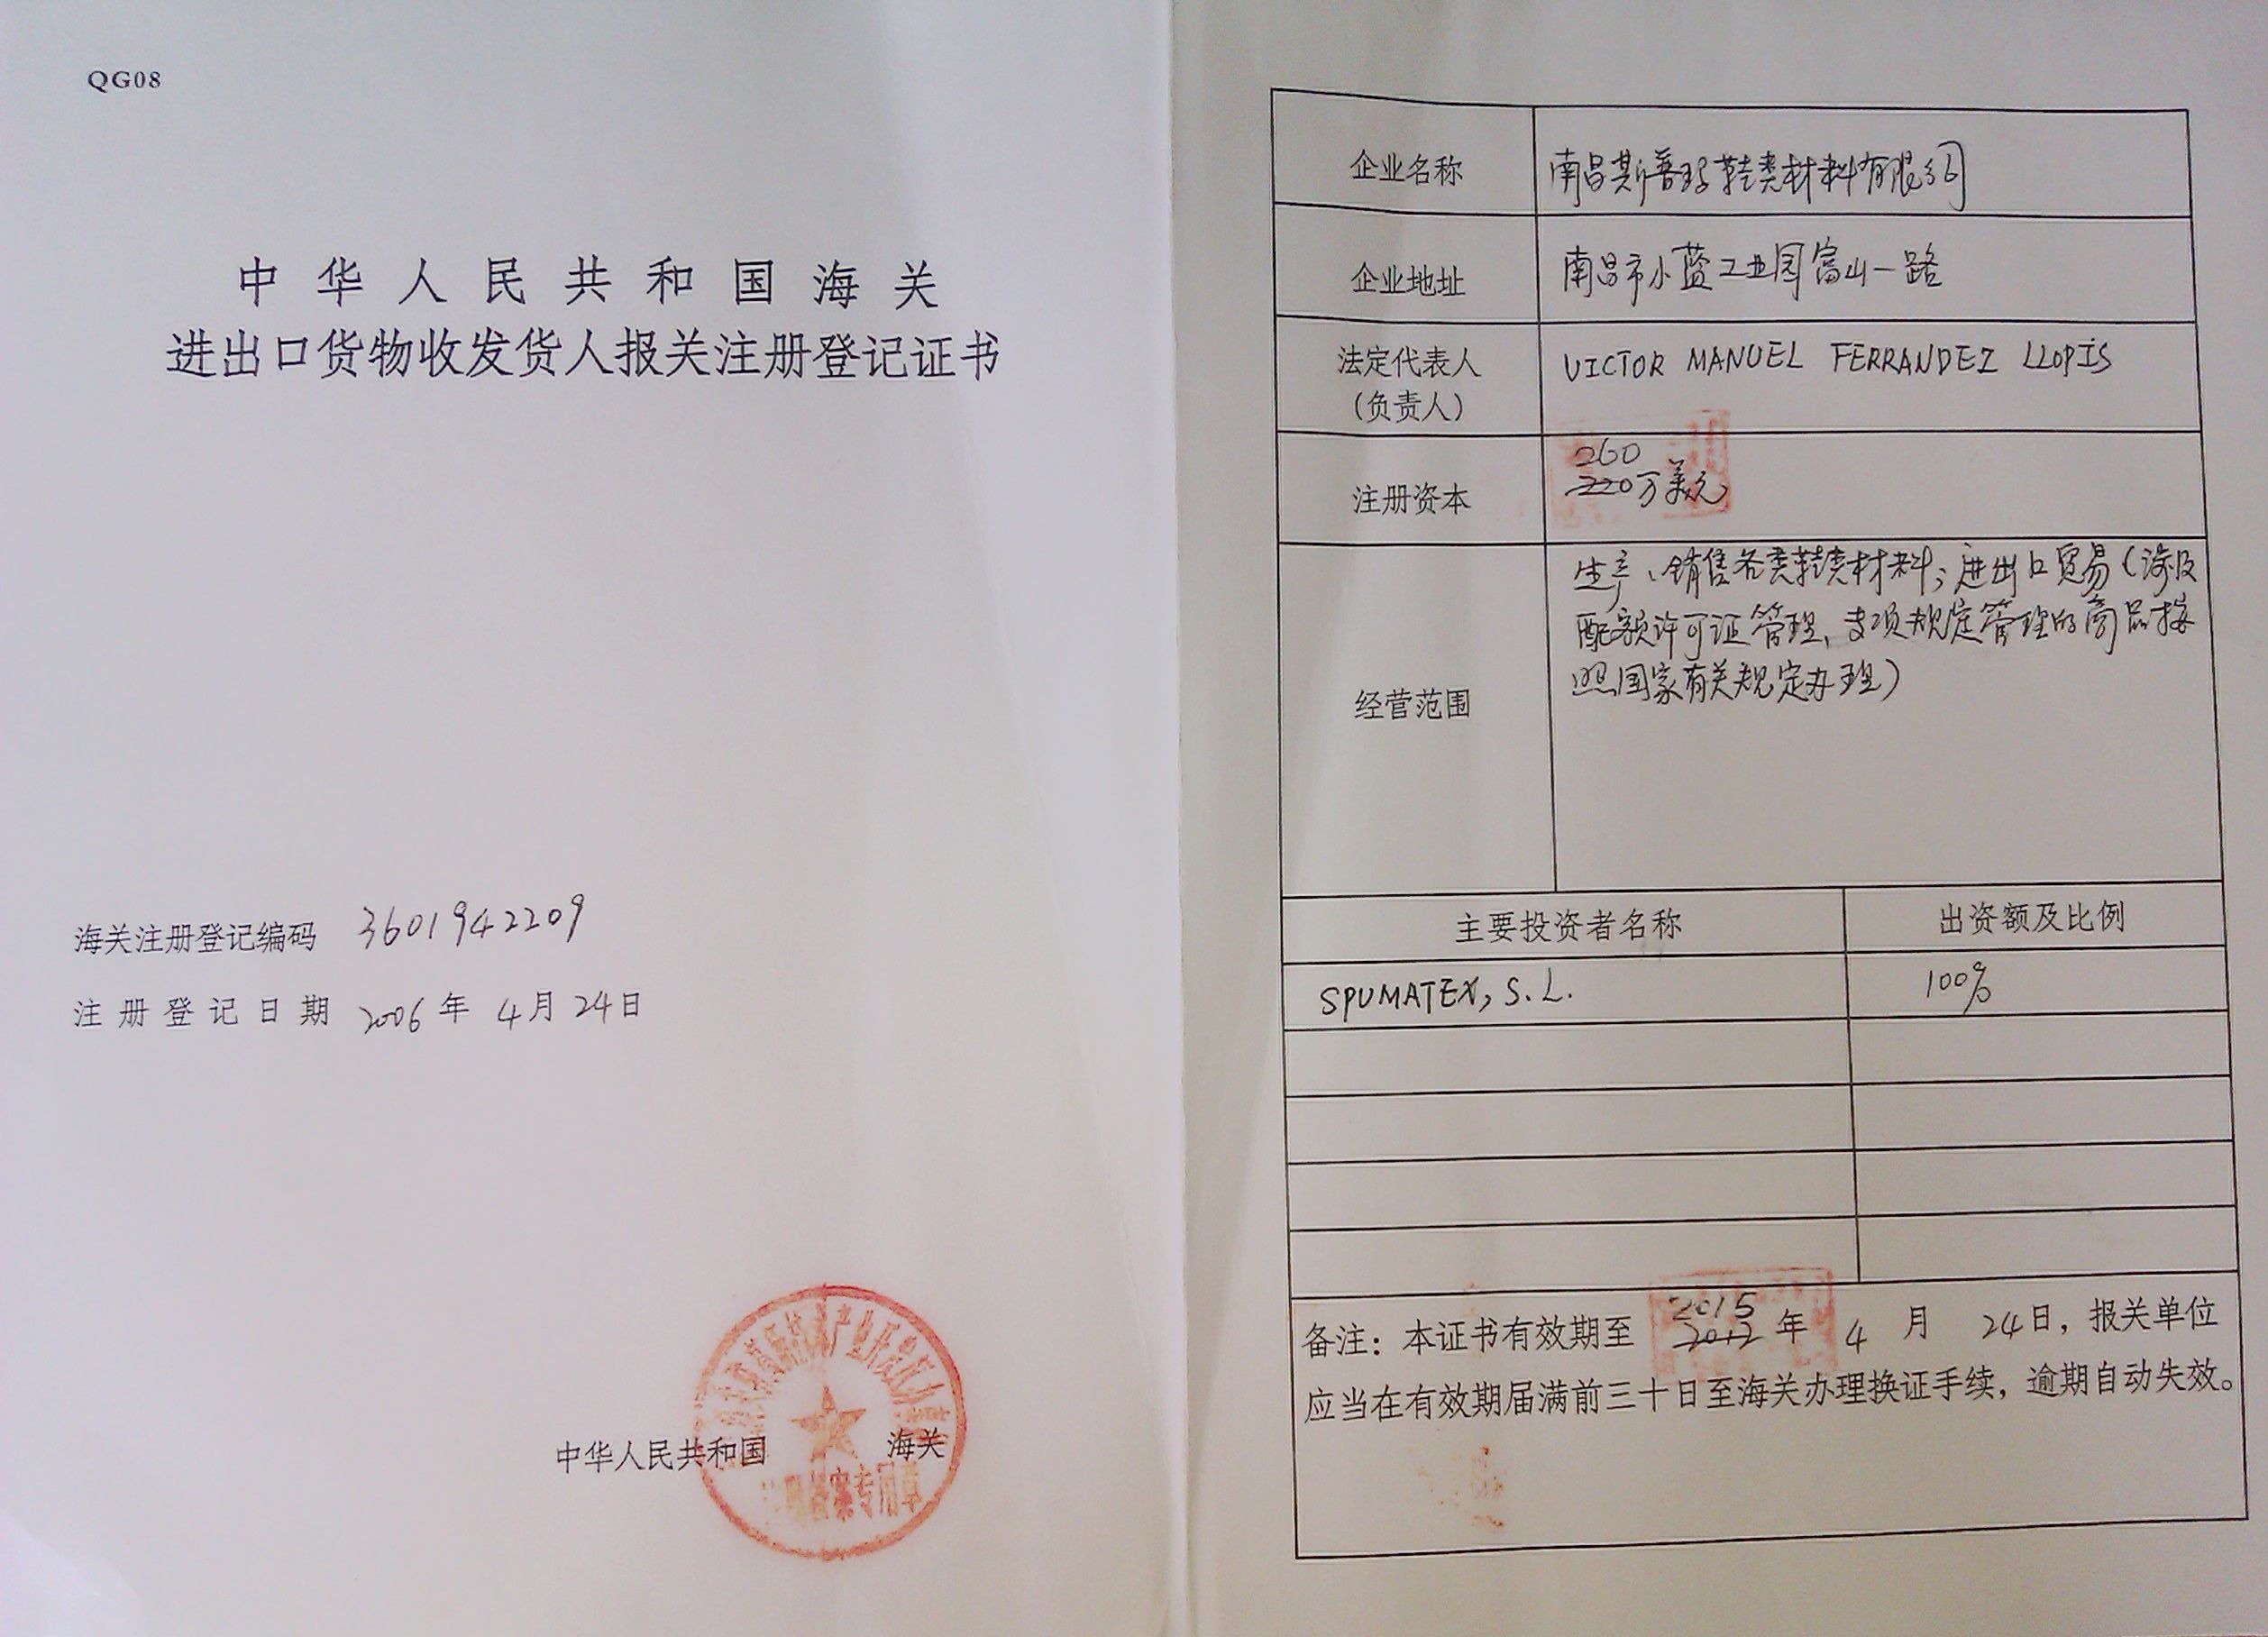 QG08
中华人民共和国海关
进出口货物收发货人报关注册登记证书
海关注册登记编码 3601942209
注册登记日期 2006年 4月 24日
中华人民共和国 海关
备案专用章
企业名称 南昌斯普玛鞋类材料有限公司
企业地址 南昌市小蓝工业园富山一路
法定代表人 VICTOR MANUEL FERRANDEZ LLOPIS
(负责人)
260
注册资本 220万美元
生产、销售各类鞋类材料;进出口贸易(涉及
配额许可证管理、专项规定管理的商品按
照国家有关规定办理)
经营范围
主要投资者名称 出资额及比例
SPUMATEX, S.L. 100%
2015
备注:本证书有效期至 2012年 4月 24日,报关单位
应当在有效期届满前三十日至海关办理换证手续,逾期自动失效。